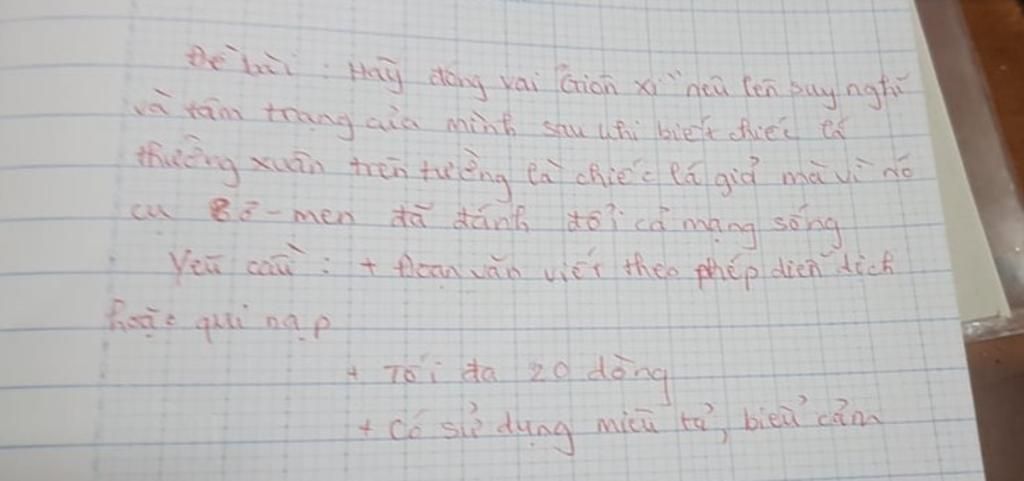 Đề bài : Hãy đóng vai "Giôn xi" nêu lên suy nghĩ
và tâm trạng của mình sau khi biết chiếc lá
thường xuân trên tường là chiếc lá giả mà vì nó
cụ Bơ-men đã đánh đổi cả mạng sống
Yêu cầu : + Đoạn văn viết theo phép diễn dịch
hoặc qui nạp
+ Tối đa 20 dòng
+ Có sử dụng miêu tả, biểu cảm